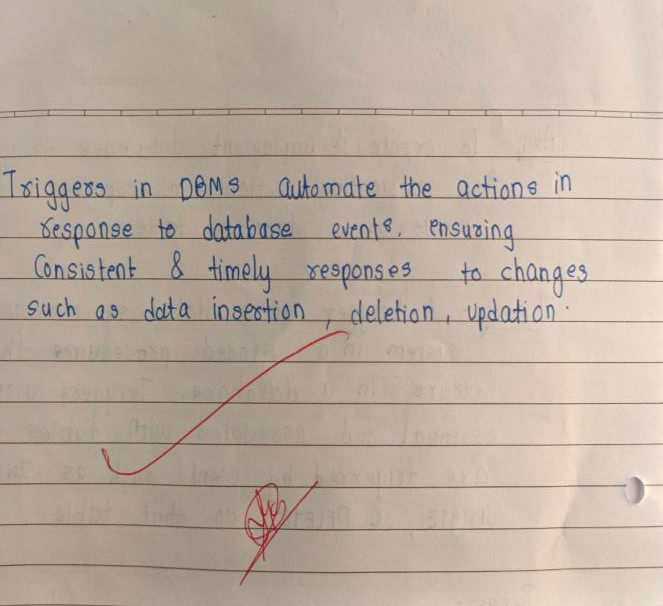 Triggers in DBMS automate the actions in
response to database events. ensuring
Consistent & timely responses to changes
such as data insertion, deletion, updation.